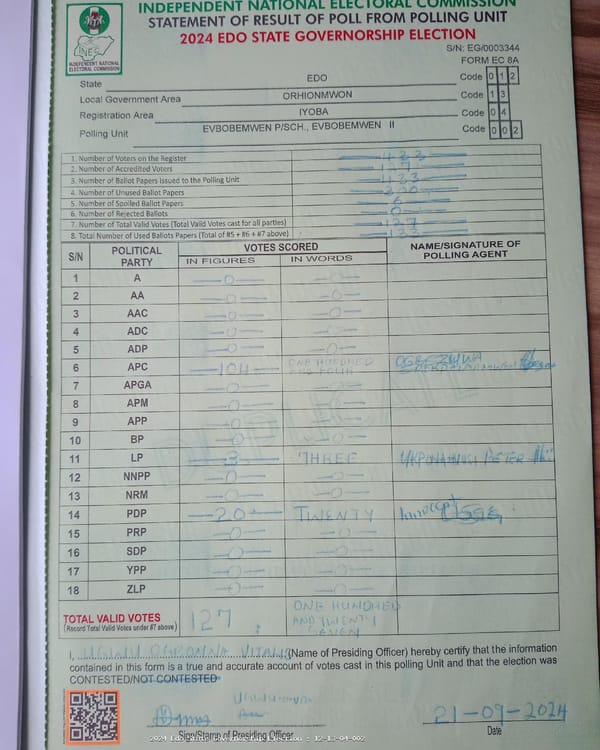 INDEPENDENT NATIONAL ELECTORAL COMMISSION
STATEMENT OF RESULT OF POLL FROM POLLING UNIT
2024 EDO STATE GOVERNORSHIP ELECTION
INEC
INDEPENDENT NATIONAL ELECTORAL COMMISSION
S/N: EG/0003344
FORM EC 8A
State EDO Code 0 1 2
Local Government Area ORHIONMWON Code 1 3
Registration Area IYOBA Code 0 4
Polling Unit EVBOBEMWEN P/SCH., EVBOBEMWEN II Code 0 0 2
1. Number of Voters on the Register
2. Number of Accredited Voters
3. Number of Ballot Papers Issued to the Polling Unit
4. Number of Unused Ballot Papers
5. Number of Spoiled Ballot Papers
6. Number of Rejected Ballots
7. Number of Total Valid Votes (Total Valid Votes cast for all parties) 127
8. Total Number of Used Ballots Papers (Total of #5 + #6 + #7 above)
S/N POLITICAL PARTY VOTES SCORED NAME/SIGNATURE OF POLLING AGENT
IN FIGURES IN WORDS
1 A 0 0
2 AA 0 0
3 AAC 0 0
4 ADC 0 0
5 ADP 0 0
6 APC 104 ONE HUNDRED AND FOUR
7 APGA 0 0
8 APM 0 0
9 APP 0 0
10 BP 0 0
11 LP 3 THREE PETER
12 NNPP 0 0
13 NRM 0 0
14 PDP 20 TWENTY
15 PRP 0 0
16 SDP 0 0
17 YPP 0 0
18 ZLP 0 0
TOTAL VALID VOTES 127 ONE HUNDRED AND TWENTY SEVEN
(Record Total Valid Votes under #7 above)
I, (Name of Presiding Officer) hereby certify that the information
contained in this form is a true and accurate account of votes cast in this polling Unit and that the election was
CONTESTED/NOT CONTESTED
21-09-2024
Sign/Stamp of Presiding Officer Date
2024 Edo State Governorship Election : 12-13-04-002